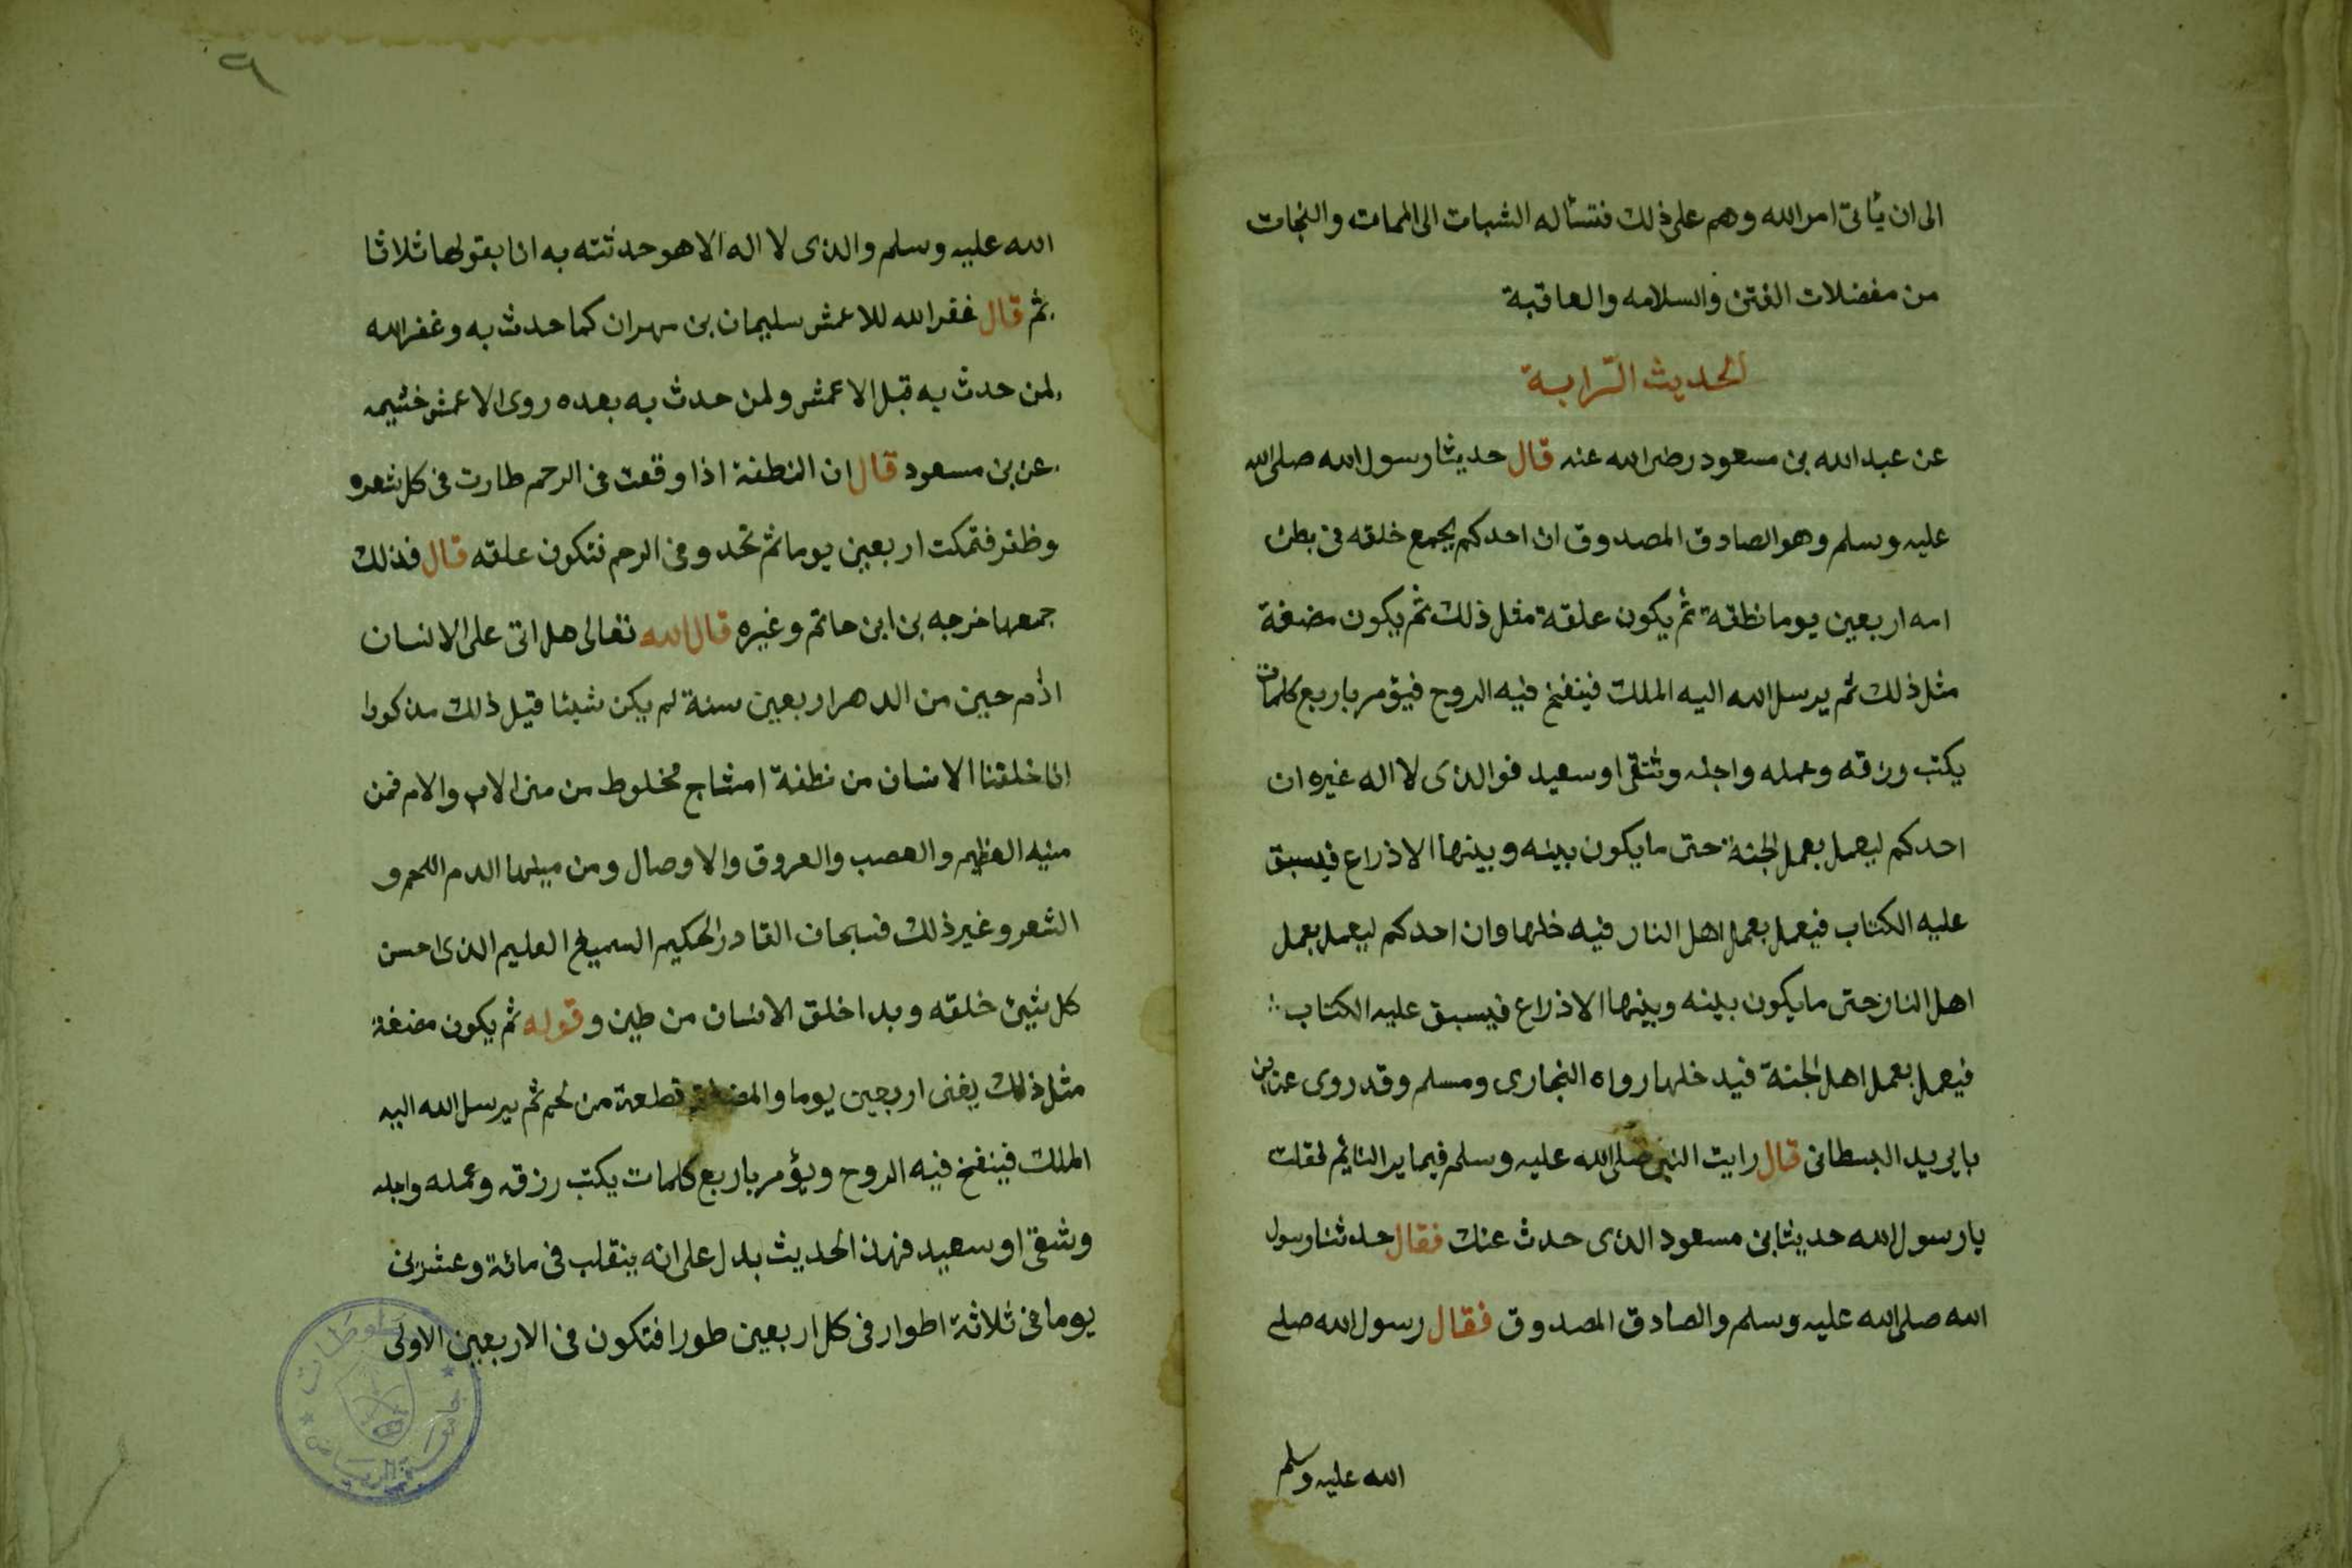 الى ان يأتى امر الله وهم على ذلك فنسأله الثبات الى الممات والنجات
من مفضلات الفتن والسلامه والعاقبة
الحديث الرابـة
عن عبد الله بن مسعود رضى الله عنه قال حديثا رسول الله صلى الله
عليه وسلم وهو الصادق المصدوق ان احدكم يجمع خلقه فى بطن
امه اربعين يوما نطفة ثم يكون علقة مثل ذلك ثم يكون مضغة
مثل ذلك ثم يرسل الله اليه الملك فينفخ فيه الروح فيؤمر باربع كلمات
يكتب ورزقه وعمله واجله وشقى او سعيد فوالذى لا اله غيره ان
احدكم ليعمل بعمل الجنة حتى ما يكون بينه وبينها الا ذراع فيسبق
عليه الكتاب فيعمل بعمل اهل النار فيه خلها وان احدكم ليعمل بعمل
اهل النار حتى ما يكون بينه وبينها الا ذراع فيسبق عليه الكتاب
فيعمل بعمل اهل الجنة فيد خلها رواه البخارى ومسلم وقد روى عن ابن
بايريد البسطانى قال رايت النبى صلى الله عليه وسلم فيما يرا النايم فقلت
يا رسول الله حديثا بن مسعود الذى حدث عنك فقال حدثنا رسول
الله صلى الله عليه وسلم والصادق المصدوق فقال رسول الله صلى
الله عليه وسلم
٩
الله عليه وسلم والذى لا اله الا هو حدثته به انا يقولها ثلاثا
ثم قال غفر الله للاعمش سليمان بن مهران كما حدث به وغفر الله
لمن حدث به قبل الاعمش ولمن حدث به بعده روى الاعمش خثيمه
عن بن مسعود قال ان النطفة اذا وقعت فى الرحم طارت فى كل شعره
وظفر فتمكت اربعين يوما ثم تحدو فى الرحم فتكون علقه قال فذلك
جمعها خرجه بن ابن حاتم وغيره قال الله تعالى هل اتى على الانسان
ادم حين من الدهر اربعين سنة لم يكن شيئا قيل ذلك مذكورا
انا خلقنا الانسان من نطفة امشاج مخلوط من منى الاب والام فمن
منيه العظيم والعصب والعروق والاوصال ومن مينها الدم اللحم و
الشعر وغير ذلك فسبحان القادر الحكيم السميع العليم الذى احسن
كل شيئ خلقه وبدا خلق الانسان من طين وقوله ثم يكون مضغة
مثل ذلك يغنى اربعين يوما والمضغة قطعة من لحم ثم يرسل الله اليه
الملك فينفخ فيه الروح ويؤمر باربع كلمات يكتب رزقه وعمله واجله
وشقى او سعيد فهذا الحديث يدل على انه ينقلب فى مائة وعشرين
يوما فى ثلاثة اطوار فى كل اربعين طورا فتكون فى الاربعين الاولى